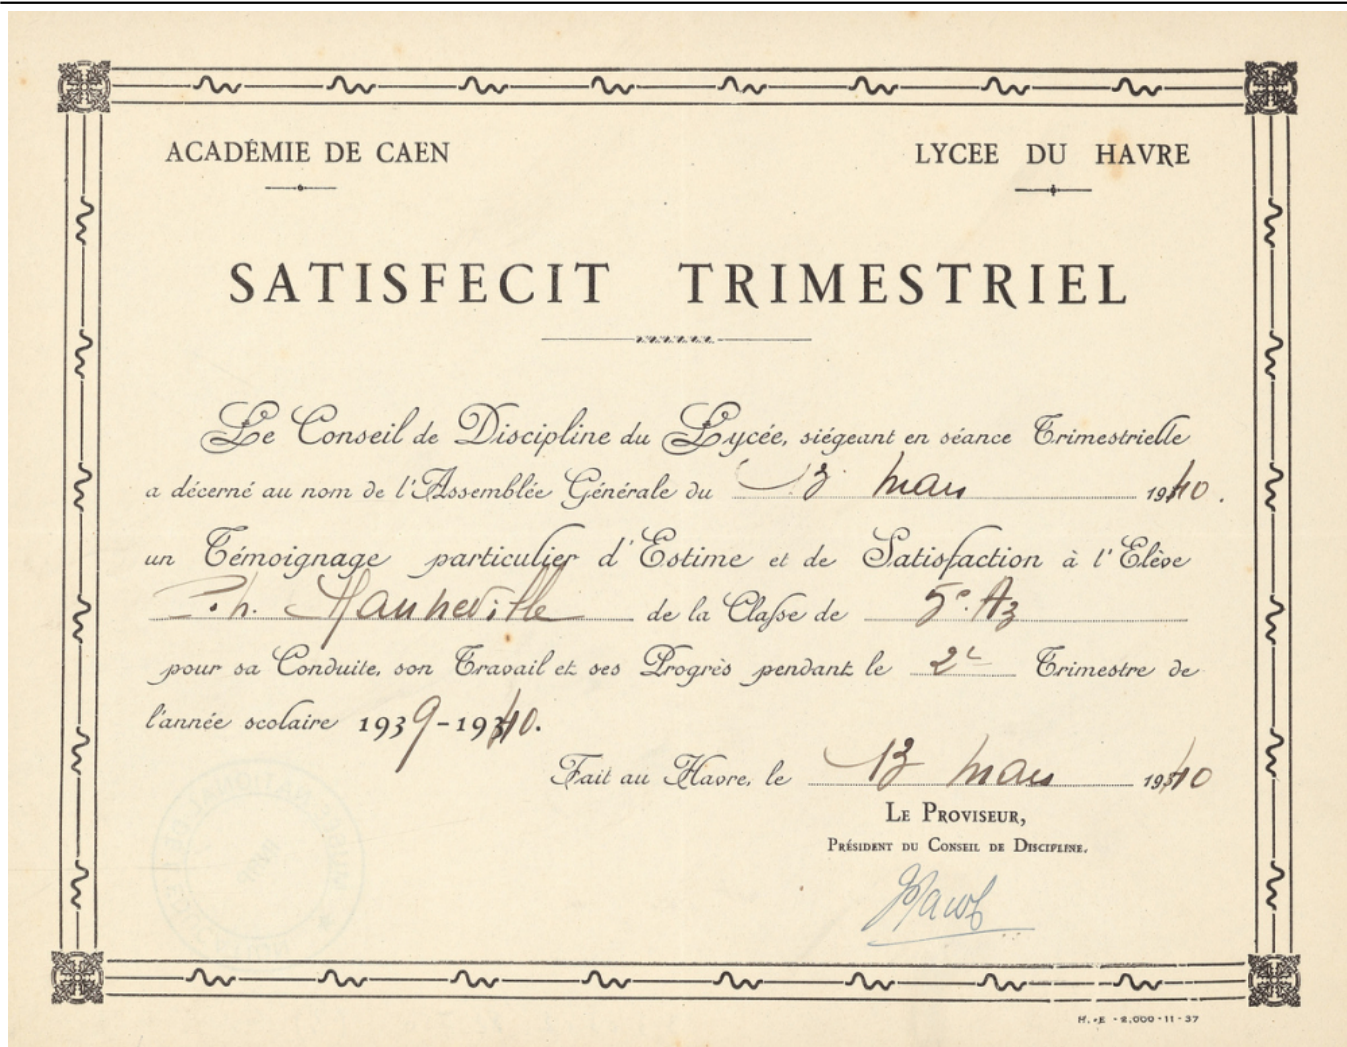 ACADÉMIE DE CAEN
LYCEE DU HAVRE
SATISFECIT TRIMESTRIEL
Le Conseil de Discipline du Lycée, siégeant en séance Trimestrielle
a décerné au nom de l'Assemblée Générale du 13 mars 1940.
un Témoignage particulier d'Estime et de Satisfaction à l'Elève
Ph. Manneville de la Classe de 5e A3
pour sa Conduite, son Travail et ses Progrès pendant le 2e Trimestre de
l'année scolaire 1939-1940.
Fait au Havre, le 13 mars 1940
LE PROVISEUR,
PRÉSIDENT DU CONSEIL DE DISCIPLINE.
H.-E - 2,000-11-37